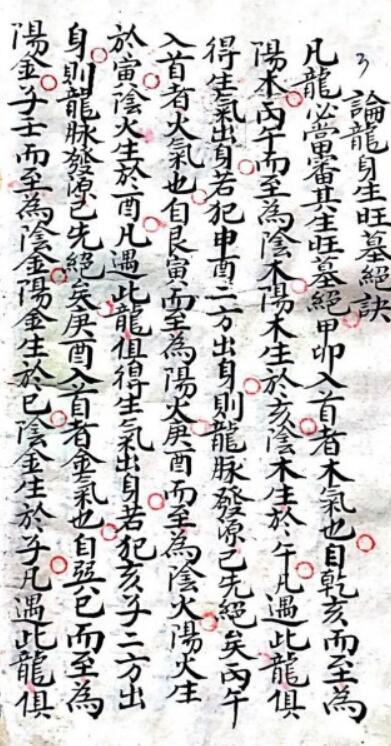 論龍身生旺墓絕訣
凡龍必當審其生旺墓絕甲卯入首者木氣也自乾亥而至為
陽木丙午而至為陰木陽木生於亥陰木生於午凡遇此龍俱
得生氣出身若犯申酉二方出身則龍脉發源已先絕矣丙午
入首者火氣也自艮寅而至為陽火庚酉而至為陰火陽火生
於寅陰火生於酉凡遇此龍俱得生氣出身若犯亥子二方出
身則龍脉發源已先絕矣庚酉入首者金氣也自巽巳而至為
陽金子壬而至為陰金陽金生於巳陰金生於子凡遇此龍俱